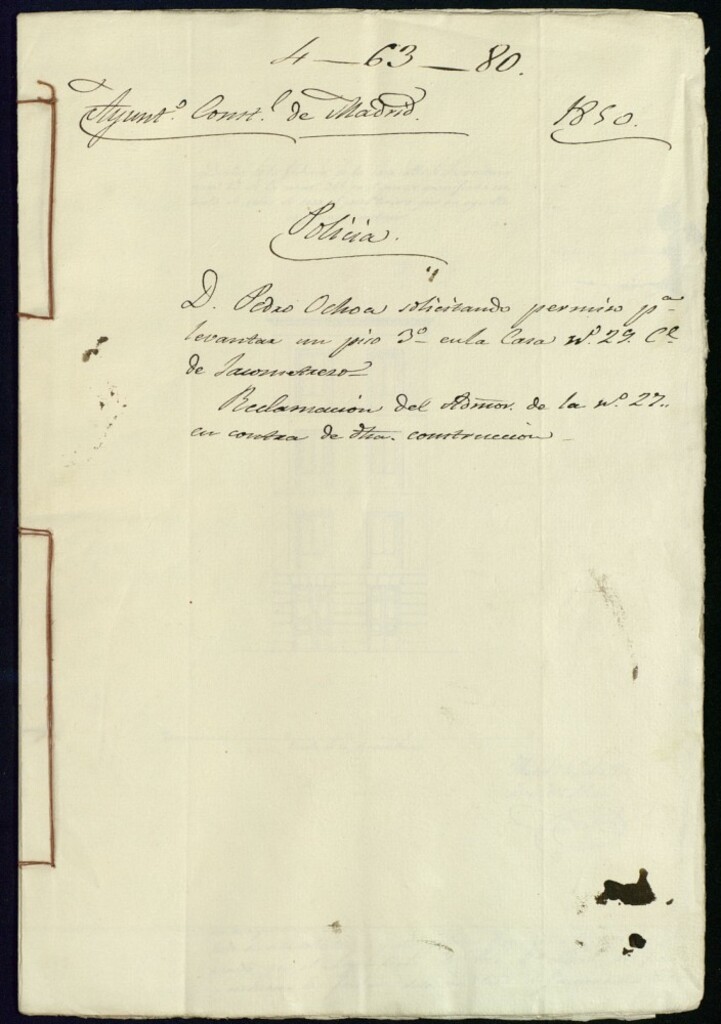 4-63-80.
Ayunt.º Const.l de Madrid. 1850.
Policia.
D. Pedro Ochoa solicitando permiso p.ª
levantar un piso 3º en la Casa nº. 29. C.e
de Jacometrezo
Reclamacion del Admor. de la nº. 27.
en contra de dha. construccion